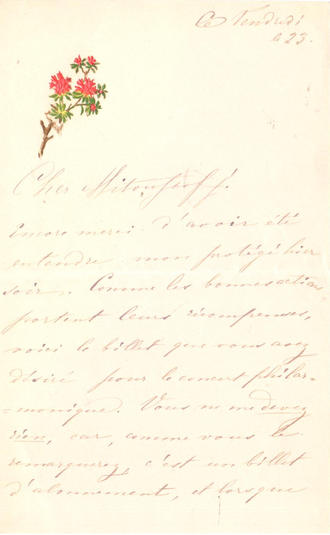 Ce Vendredi
le 23.
Cher Mitousoff!
Encore merci d'avoir été
entendre mon protégé hier
soir. Comme les bonnes actions
portent leurs récompenses,
voici le billet que vous avez
désiré pour le concert philar-
=monique. Vous ne me devez
rien, car, comme vous le
remarquerez, c'est un billet
d'abonnement, et lorsque